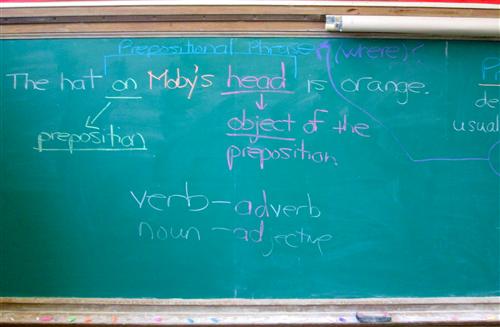 Prepositional Phrase (where)?
The hat on Moby's head is orange.
preposition
object of the
preposition
verb - adverb
noun - adjective
P
de
usual